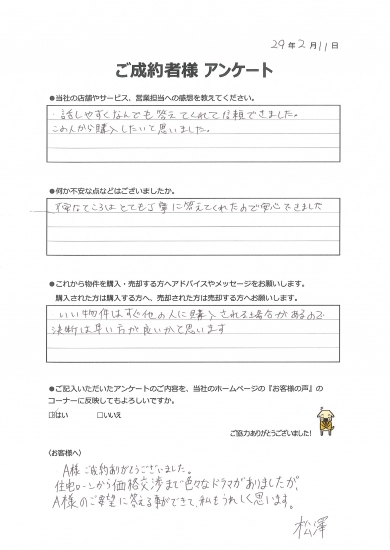 29年2月11日
ご成約者様 アンケート
●当社の店舗やサービス、営業担当への感想を教えてください。
・話しやすくなんでも答えてくれて信頼できました。
この人から購入したいと思いました。
●何か不安な点などはございましたか。
不安なところはとても丁寧に答えてくれたので安心できました
●これから物件を購入・売却する方へアドバイスやメッセージをお願いします。
購入された方は購入する方へ、売却された方は売却する方へお願いします。
いい物件はすぐ他の人に購入される場合があるので
決断は早い方が良いかと思います
●ご記入いただいたアンケートのご内容を、当社のホームページの『お客様の声』の
コーナーに反映してもよろしいですか。
☑はい □いいえ
ご協力ありがとうございました!
〈お客様へ〉
A様ご成約ありがとうございました。
住宅ローンから価格交渉まで色々なドラマがありましたが、
A様のご要望に答える事ができて、私もうれしく思います。
松澤